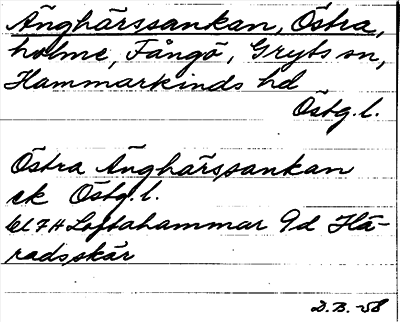 Änghärssankan, Östra,
holme, Fångö, Gryts sn,
Hammarkinds hd
Östg.l.
Östra Änghärssankan
ek Östg.l.
bl 7H Loftahammar 9d Hä-
radsskär
D.B. -58